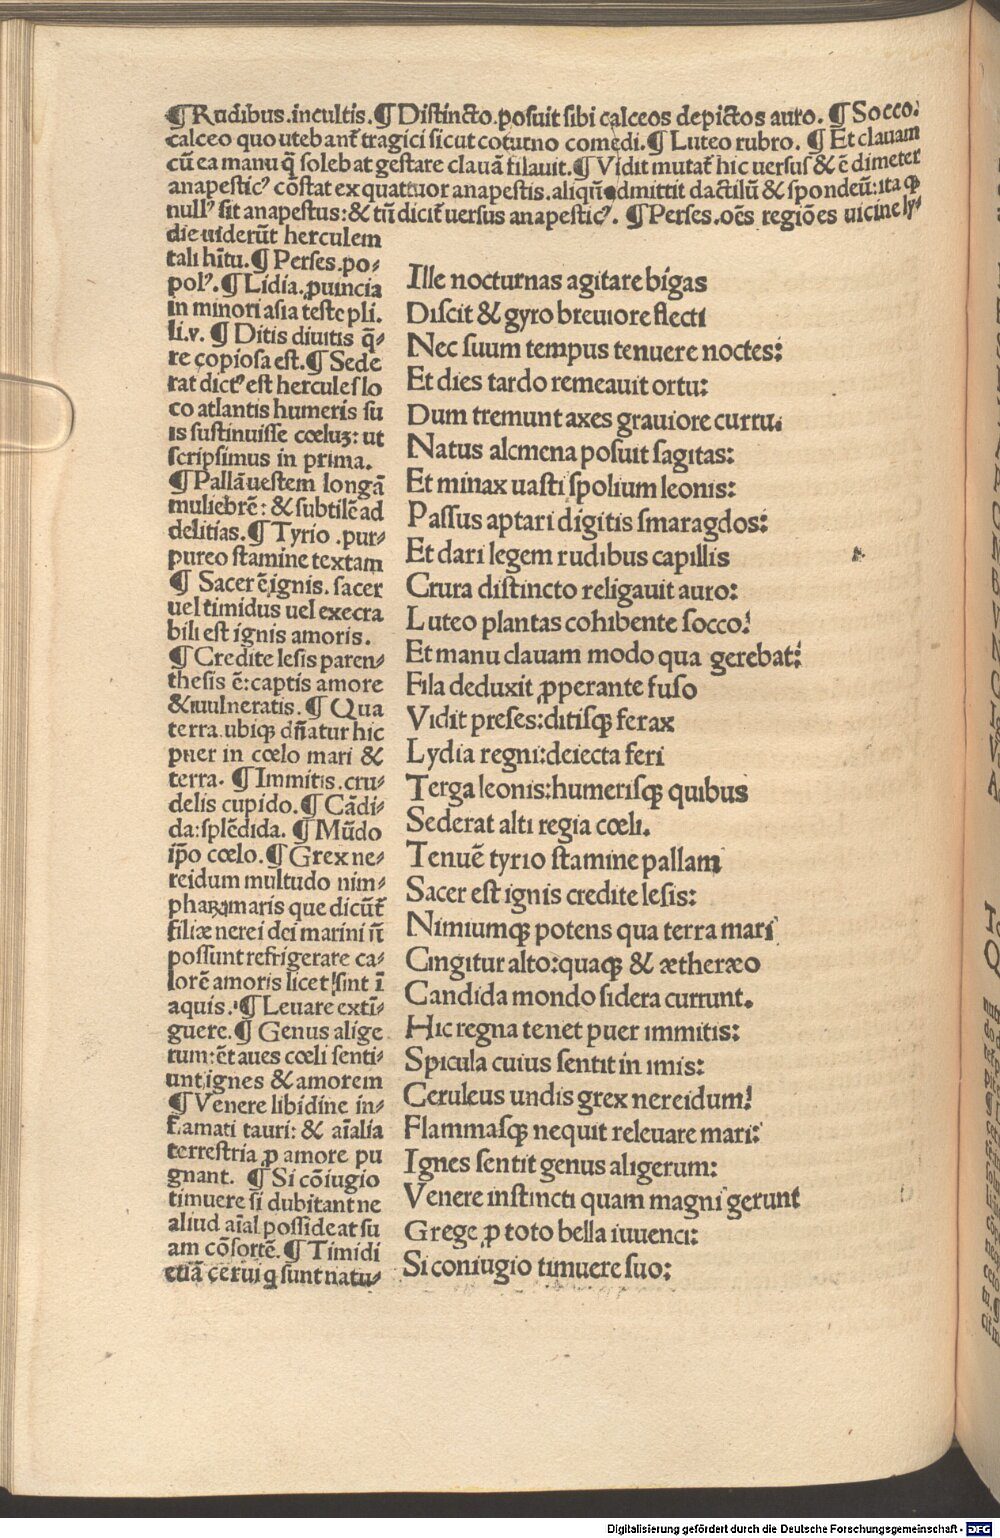 ¶Rudibus.incultis.¶Distincto.posuit sibi calceos depictos auro. ¶Socco:
calceo quo utebant̃ tragici sicut coturno comedi.¶ Luteo rubro. ¶ Et clauam
cū ea manu q̃ solebat gestare clauā filauit.¶ Vidit mutat̃ hic uersus & ē dimeter
anapestic⁹ cōstat ex quattuor anapestis.aliqñ admittit dactilū & spondeū:ita ꝙ
null⁹ sit anapestus:& tū dicit̃ uersus anapestic⁹. ¶Perses.oēs regiōes uicine ly-
die uiderūt herculem
tali hītu.¶Perses.po-
pol⁹.¶Lidia.ꝓuincia
in minori asia teste pli.
li.v. ¶ Ditis diuitis q̃-
re copiosa est.¶ Sede
rat dict⁹ est hercules lo
co atlantis humeris su
is sustinuisse cœluꝫ: ut
scripsimus in prima.
¶Pallā uestem longā
muliebrē: & subtilē ad
delitias.¶Tyrio .pur-
pureo stamine textam
¶ Sacer ē ignis. sacer
uel timidus uel execra
bili est ignis amoris.
¶Credite lesis paren-
thesis ē:captis amore
& uulneratis.¶ Qua
terra.ubiqꝫ dñatur hic
puer in cœlo mari &
terra. ¶Immitis.cru-
delis cupido.¶Cādi-
da:splēdida. ¶ Mūdo
ip̄o cœlo.¶Grex ne-
reidum multudo nim-
phaꝝ maris que dicūt̃
filiæ nerei dei marini ñ
possunt refrigerare ca-
lorē amoris licet sint ī
aquis. ¶Leuare extī-
guere.¶ Genus alige
rum:ēt aues cœli senti-
unt ignes & amorem
¶Venere libidine in-
flamati tauri: & aīalia
terrestria ꝓ amore pu
gnant. ¶ Si cōiugio
timuere si dubitant ne
aliud aīal possideat su
am cōsortē.¶Timidi
etiā cerui q sunt natu-
Ille nocturnas agitare bigas
Discit & gyro breuiore flecti
Nec suum tempus tenuere noctes:
Et dies tardo remeauit ortu:
Dum tremunt axes grauiore curru.
Natus alcmena posuit sagitas:
Et minax uasti spolium leonis:
Passus aptari digitis smaragdos:
Et dari legem rudibus capillis
Crura distincto religauit auro:
Luteo plantas cohibente socco:
Et manu clauam modo qua gerebat:
Fila deduxit ꝓperante fuso
Vidit preses:ditisqꝫ ferax
Lydia regni:deiecta feri
Terga leonis:humerisqꝫ quibus
Sederat alti regia cœli.
Tenuē tyrio stamine pallam
Sacer est ignis credite lesis:
Nimiumqꝫ potens qua terra mari
Cingitur alto:quaqꝫ & æthereo
Candida mondo sidera currunt.
Hic regna tenet puer immitis:
Spicula cuius sentit in imis:
Ceruleus undis grex nereidum:
Flammasqꝫ nequit releuare mari:
Ignes sentit genus aligerum:
Venere instincti quam magni gerunt
Grege ꝓ toto bella iuuenci:
Si coniugio timuere suo:
Digitalisierung gefördert durch die Deutsche Forschungsgemeinschaft - DFG